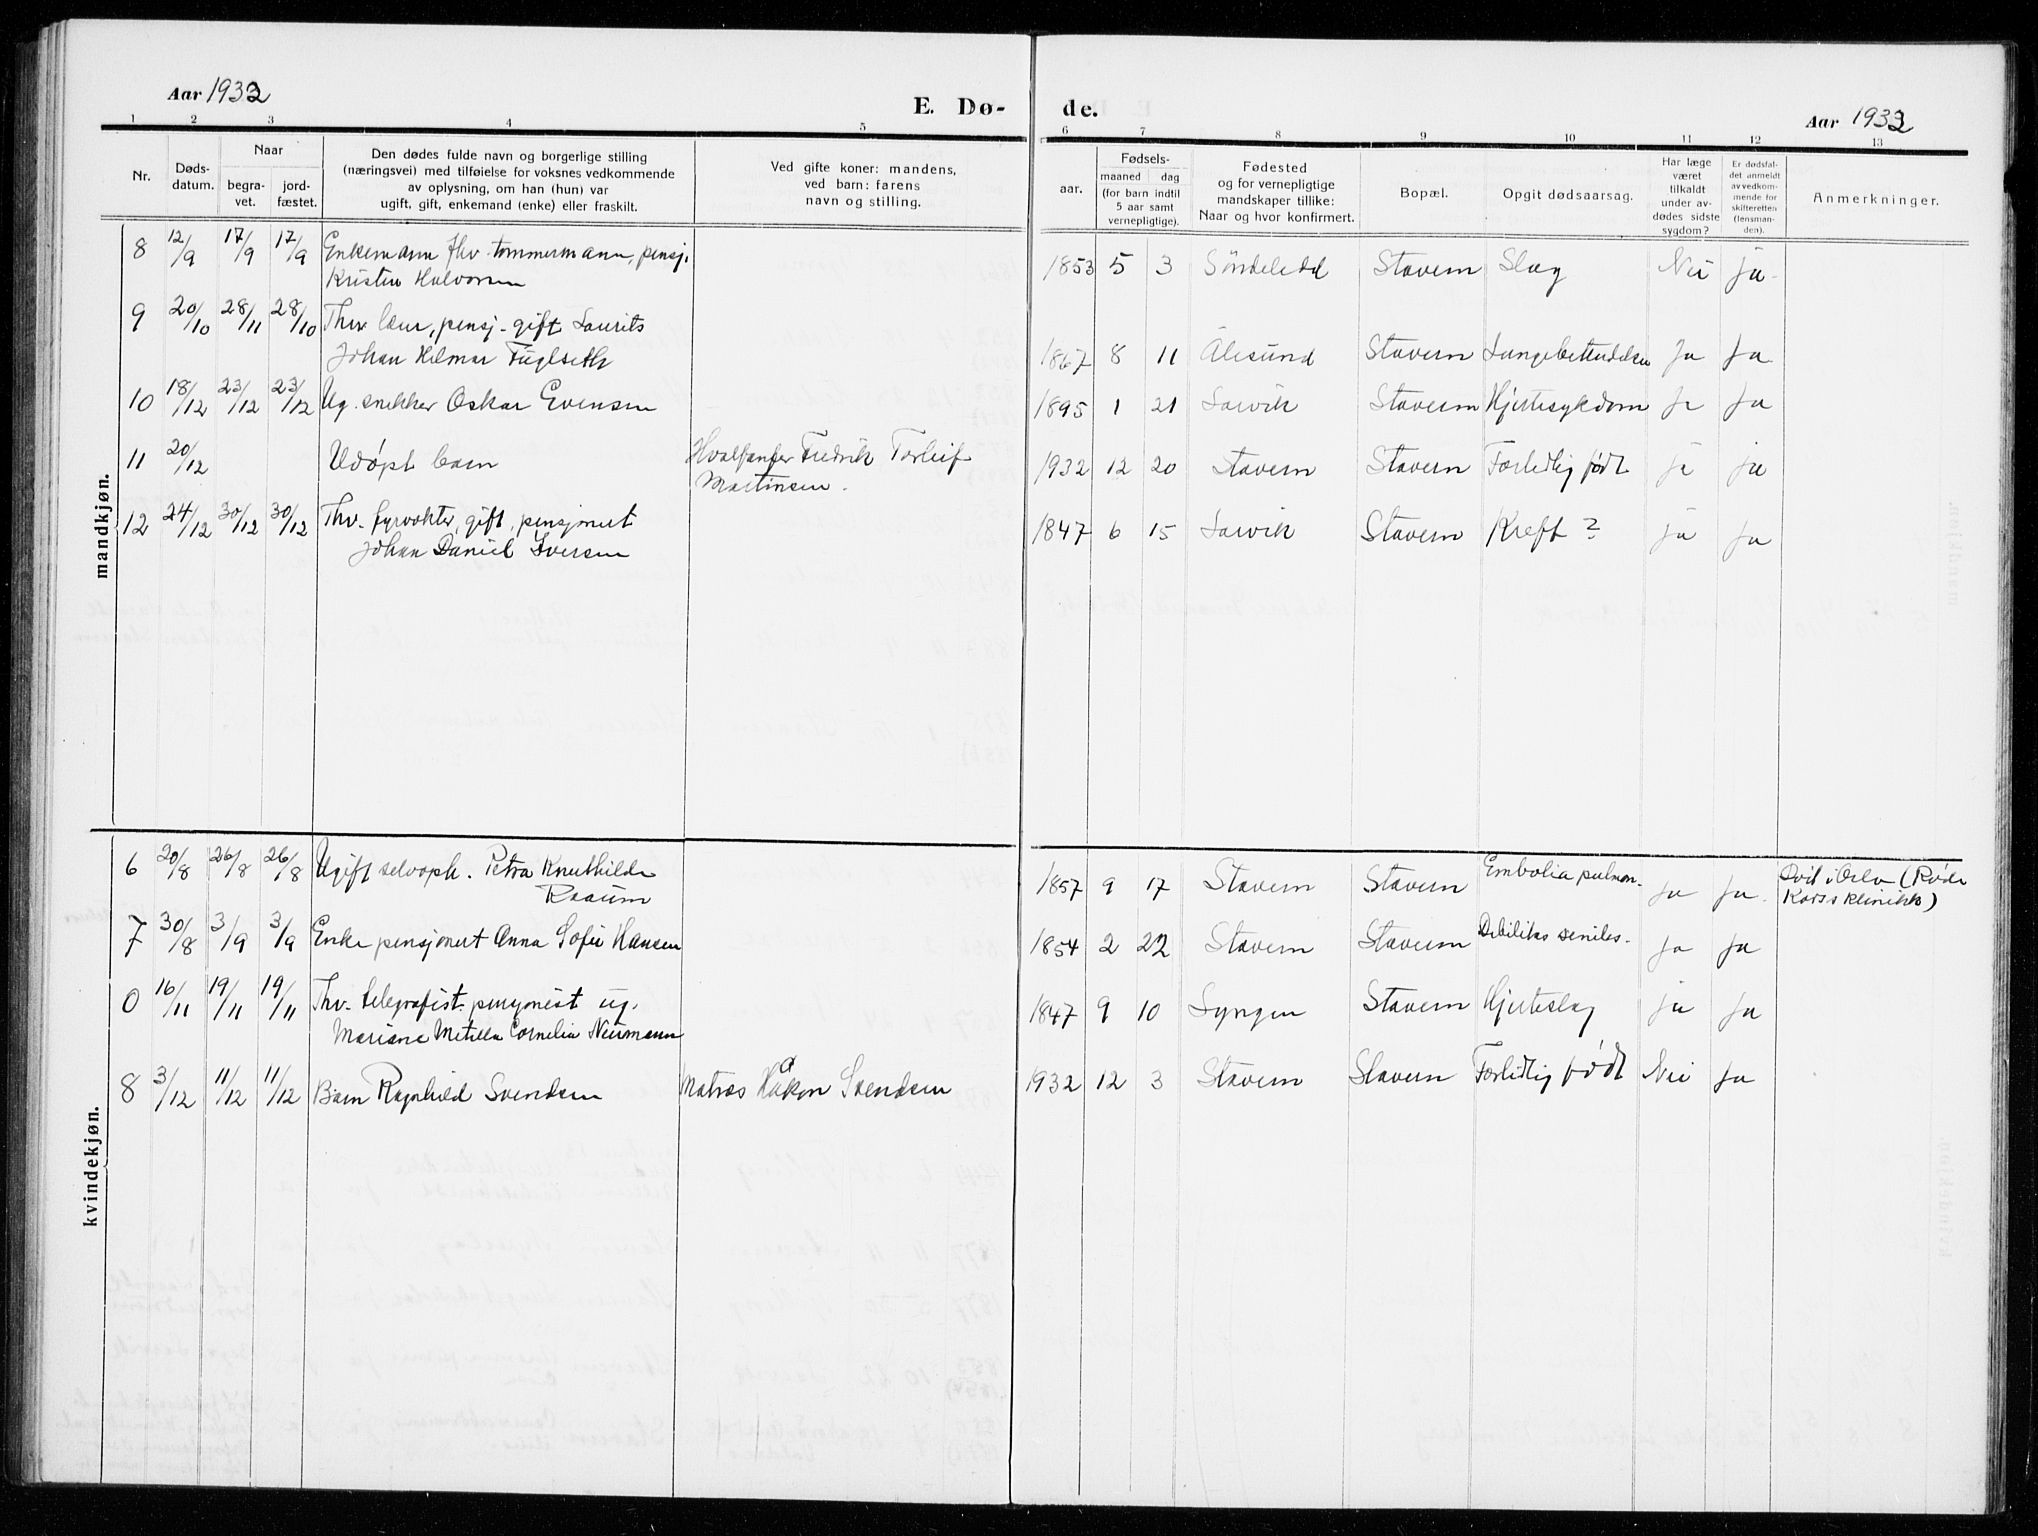 Aar 1932
E. Dø-
de.
Aar 1932
1 2 3 4 5 6 7 8 9 10 11 12 13
Nr.
Døds-
datum.
Naar
begra-
vet.
jord-
fæstet.
Den dødes fulde navn og borgerlige stilling
(næringsvei) med tilføielse for voksnes vedkommende
av oplysning, om han (hun) var
ugift, gift, enkemand (enke) eller fraskilt.
Ved gifte koner: mandens,
ved barn: farens
navn og stilling.
aar.
Fødsels-
maaned dag
(for barn indtil
5 aar samt
vernepligtige).
Fødested
og for vernepligtige
mandskaper tillike:
Naar og hvor konfirmert.
Bopæl.
Opgit dødsaarsag.
Har læge
været
tilkaldt
under av-
dødes sidste
sygdom?
Er dødsfal-
det anmeldt
av vedkom-
mende for
skifteretten
(lensman-
den).
Anmerkninger.
mandkjøn.
8 12/9 17/9 17/9 Enkemann fhv. tømmermann, pensj.
Kristen Halvorsen
1853 5 3 Søndeled Stavern Slag Nei ja
9 20/10 28/11 28/10 Thv. pensj. gift Laurits
Johan Hilmar Fuglseth
1867 8 11 Ålesund Stavern Lungebetendelse Ja Ja
10 18/12 23/12 23/12 Ug. snekker Oskar Evensen
1895 1 21 Larvik Stavern Hjertesykdom Ja Ja
11 20/12 Udøpt barn Hvalfanger Fredrik Torleif
Martinsen.
1932 12 20 Stavern Stavern Fortidlig født ja ja
12 24/12 30/12 30/12 Thv. fyrvokter, gift, pensjonert
Johan Daniel Iversen
1847 6 15 Larvik Stavern Kreft? ja Ja
kvindekjøn.
6 20/8 26/8 26/8 Ugift selvoph. Petra Knuthilde
Raaum
1857 9 17 Stavern Stavern Embolia pulmon. Ja Ja. Død i Oslo (Røde
Kors's klinikk)
7 30/8 3/9 3/9 Enke pensjonert Anna Sofie Hansen
1854 2 22 Stavern Stavern Debilitas seniles. Ja Ja
0 16/11 19/11 19/11 Thv. telegrafist pensjonist ug.
Mariane Cornelia Neumann
1847 9 10 Lyngør Stavern Hjerteslag ja Ja
8 3/12 11/12 11/12 Barn Ragnhild Svendsen Matros Håkon Svendsen
1932 12 3 Stavern Stavern Fortidlig født Nei Ja